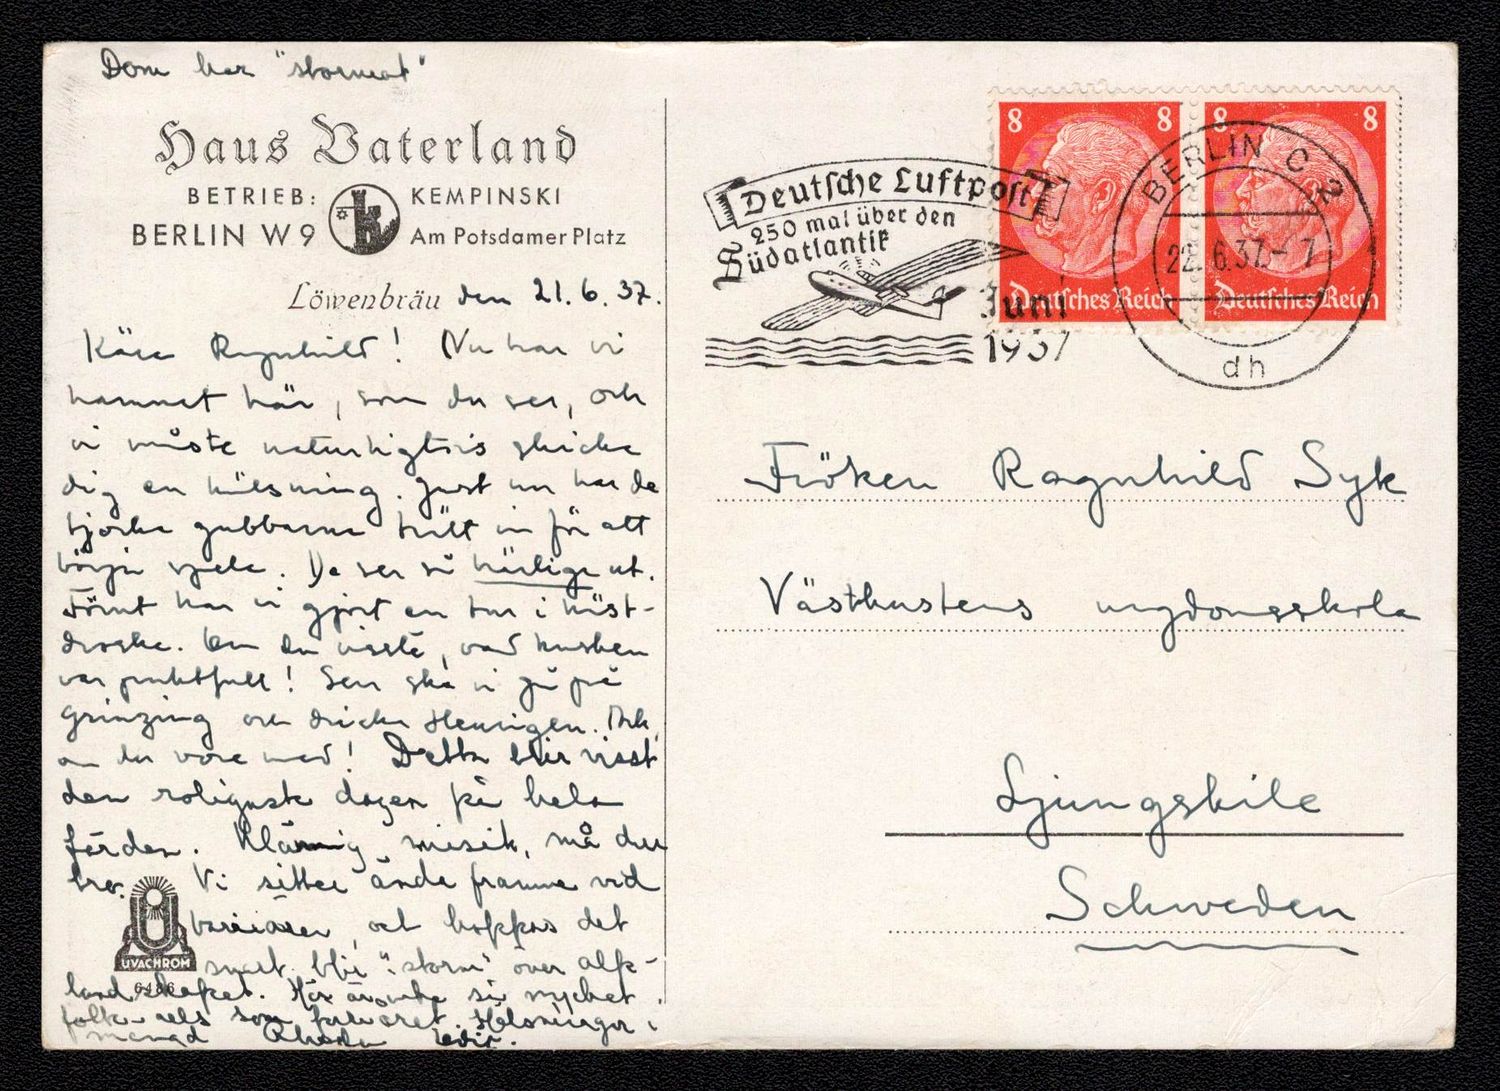 Dom har "stormat"
Haus Vaterland
BETRIEB: KEMPINSKI
BERLIN W 9 Am Potsdamer Platz
Löwenbräu den 21.6.37.
Kära Ragnhild! Nu har vi
hamnat här, som du ser, och
vi måste naturligtvis skicka
dig en hälsning. Just nu har de
tjocka gubbarna trätt in för att
börja spela. De ser så härliga ut.
Förut har vi gjort en tur i häst-
droska. Om du visste, vad kusken
var praktfull! Sen ska vi gå på
Grinzing och dricka Heurigen. Ack,
om du vore med! Detta blir visst
den roligaste dagen på hela
färden. Klämmig musik, må du
tro. Vi sitter ända framme vid
barriären, och hoppas det
snart blir "storm" över alp-
landskapet. Här är inte så mycket
folk som förväret. Hälsningar i
mängd
UVACHROM
Deutsche Luftpost
250 mal über den
Südatlantik
Juni
1937
8 8 8 8
Deutsches Reich Deutsches Reich
BERLIN C 2
22.6.37.- 7
dh
Fröken Ragnhild Syk
Västkustens ungdomsskola
Ljungskile
Schweden